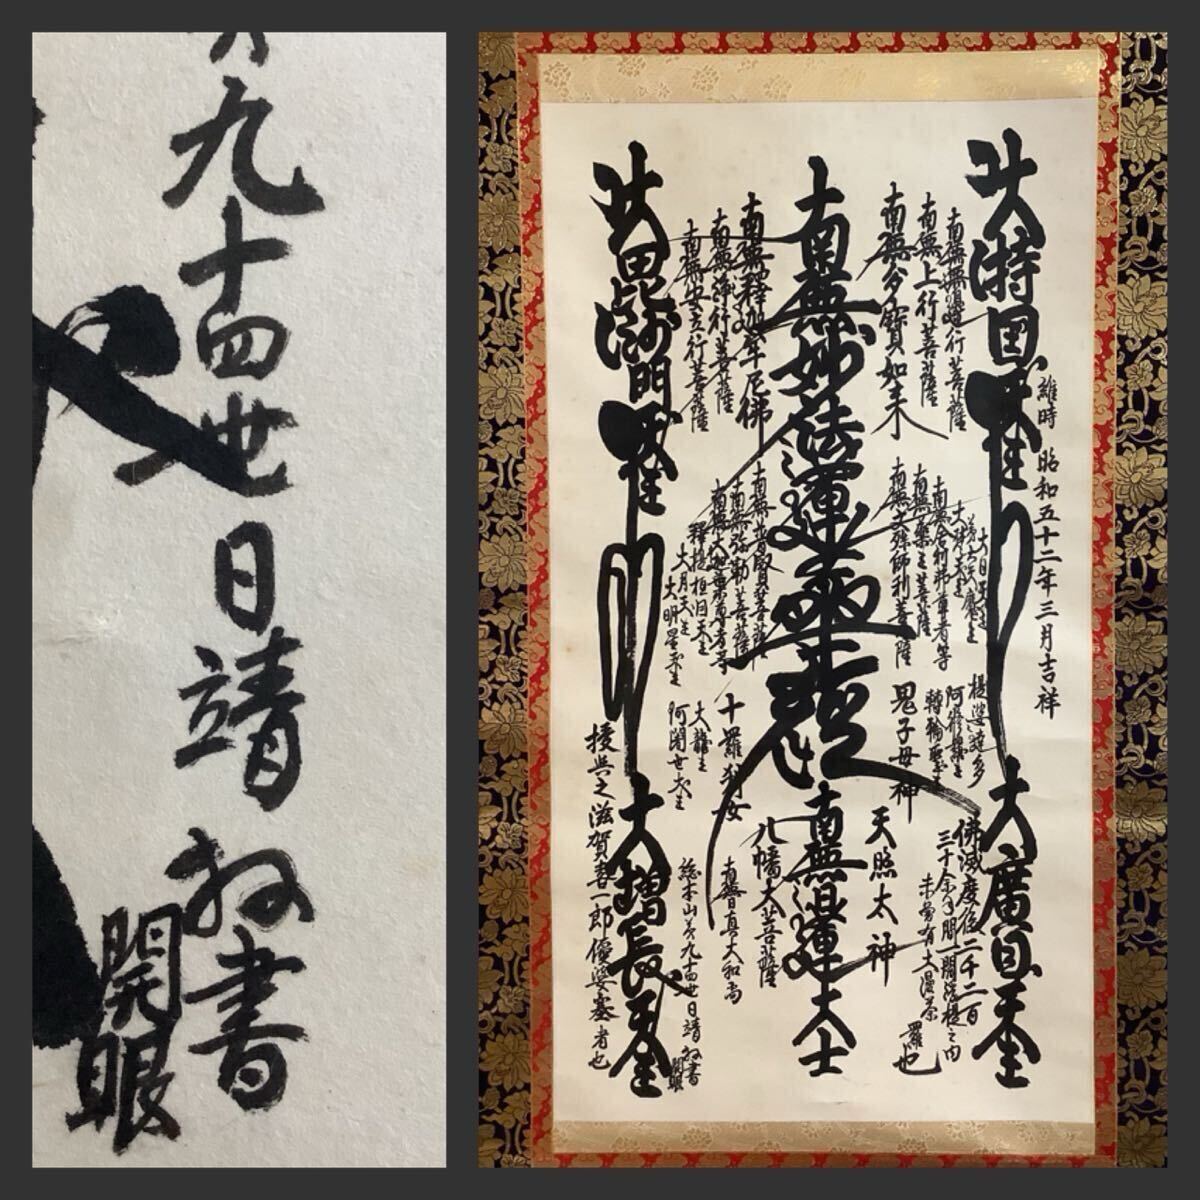 九十四世日靖敬書
開眼
維時 昭和五十二年三月吉祥
大持国天王
大廣目天王
南無無邊行菩薩
南無上行菩薩
南無多寶如来
南無妙法蓮華経
南無釋迦牟尼佛
南無浄行菩薩
南無安立行菩薩
大毘沙門天王
大増長天王
大日天王
第六天魔王
大梵天王
南無舎利弗尊者等
南無薬王菩薩
南無文殊師利菩薩
南無普賢菩薩
南無弥勒菩薩
南無大迦葉尊者等
釋提桓因天王
大月天王
大明星天王
提婆達多
阿修羅王
轉輪聖王
鬼子母神
十羅刹女
大龍王
阿闍世大王
天照太神
八幡大菩薩
南無日蓮大士
南無日真大和尚
佛滅度後二千二百
三十余年間一閻浮提之内
未曽有大漫荼羅也
総本山第九十四世日靖敬書
開眼
授与之滋賀喜一郎優婆塞者也